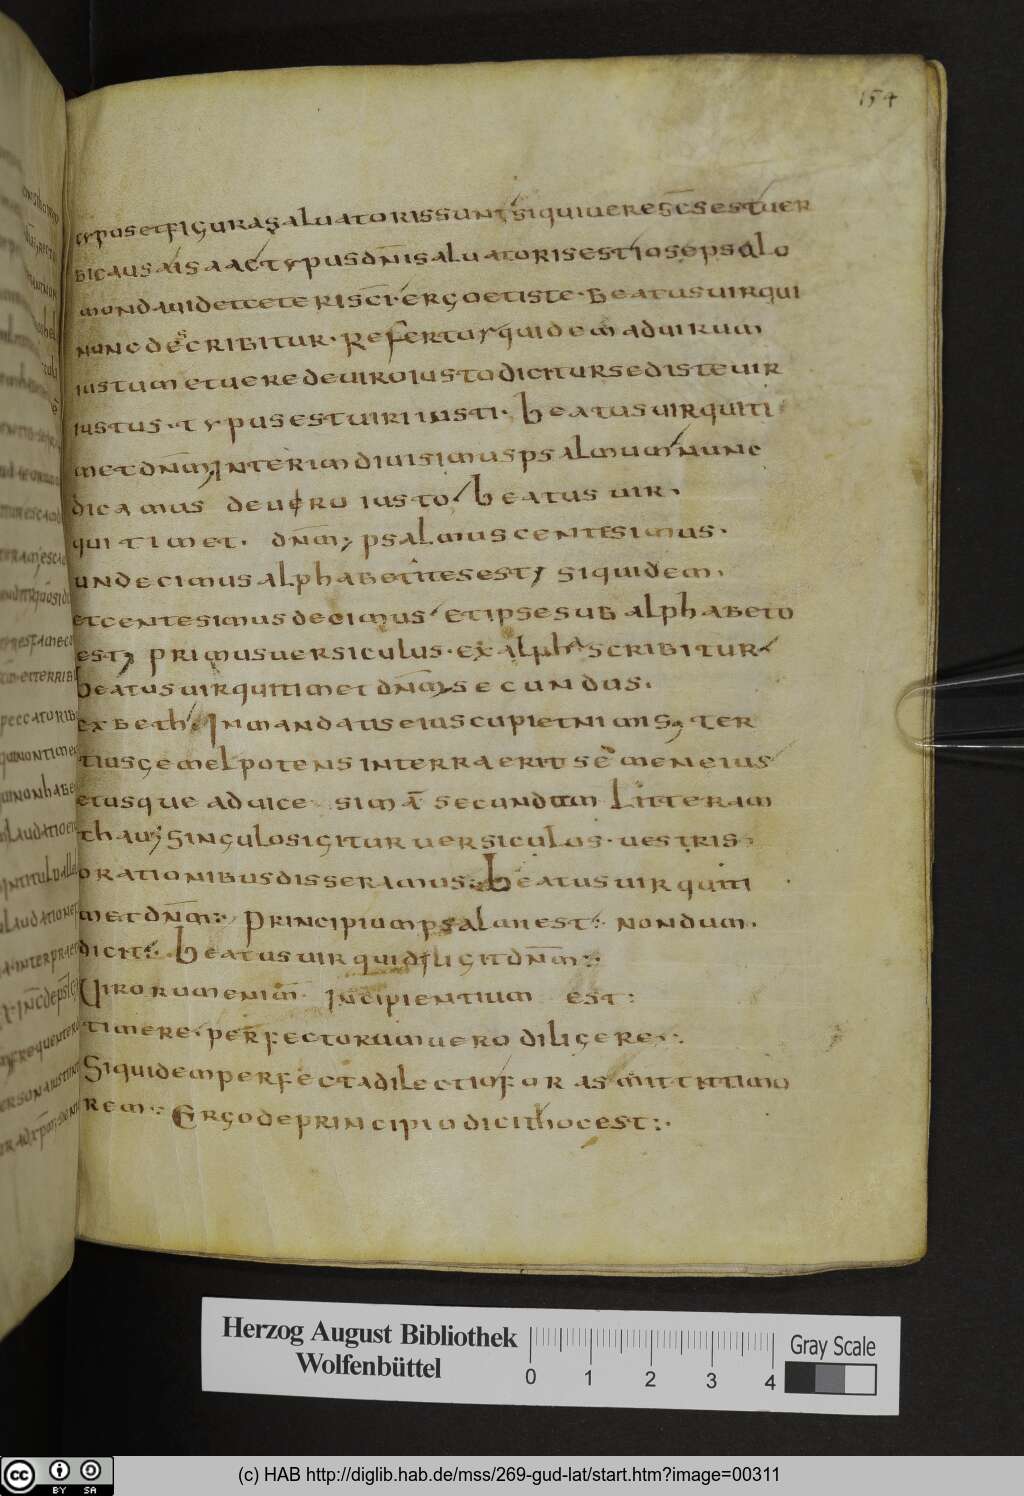 154
typus et figura saluatoris sunt siquiuere scs est uer
bi causa isaac typus dni saluatoris est ioseps alo
mon dauid et ceteri sci ergo et iste beatus uir qui
nunc describitur. Refertur quidem ad uirum
iustum et uere de uiro iusto dicitur sed iste uir
iustus. typus est uiri iusti. beatus uir qui ti
met dnm Interim diuisimus psalmum nunc
dicamus de uero iusto beatus uir.
qui timet. dnm; psalmus centesimus.
undecimus alphabetites est; siquidem.
et centesimus decimus et ipse sub alphabeto
est; primus uersiculus. ex aleph scribitur
beatus uir qui timet dnm; secundus.
ex beth. In mandatis eius cupiet nimis; ter
tius gemel potens in terra erit semen eius
et usque ad uicesimā secundam litteram
thau; Singulos igitur uersiculos. uestris
orationibus disseramus: Beatus uir qui ti
met dnm: Principium psalmi est: nondum.
dicit: beatus uir qui diligit dnm:
Uirorum enim. Incipientium est:
timere. perfectorum uero diligere:.
Siquidem perfecta dilectio foras mittit timo
rem: Ergo de principio dicit hoc est:.
Herzog August Bibliothek
Wolfenbüttel
0 1 2 3 4
Gray Scale
cc BY SA
(c) HAB http://diglib.hab.de/mss/269-gud-lat/start.htm?image=00311